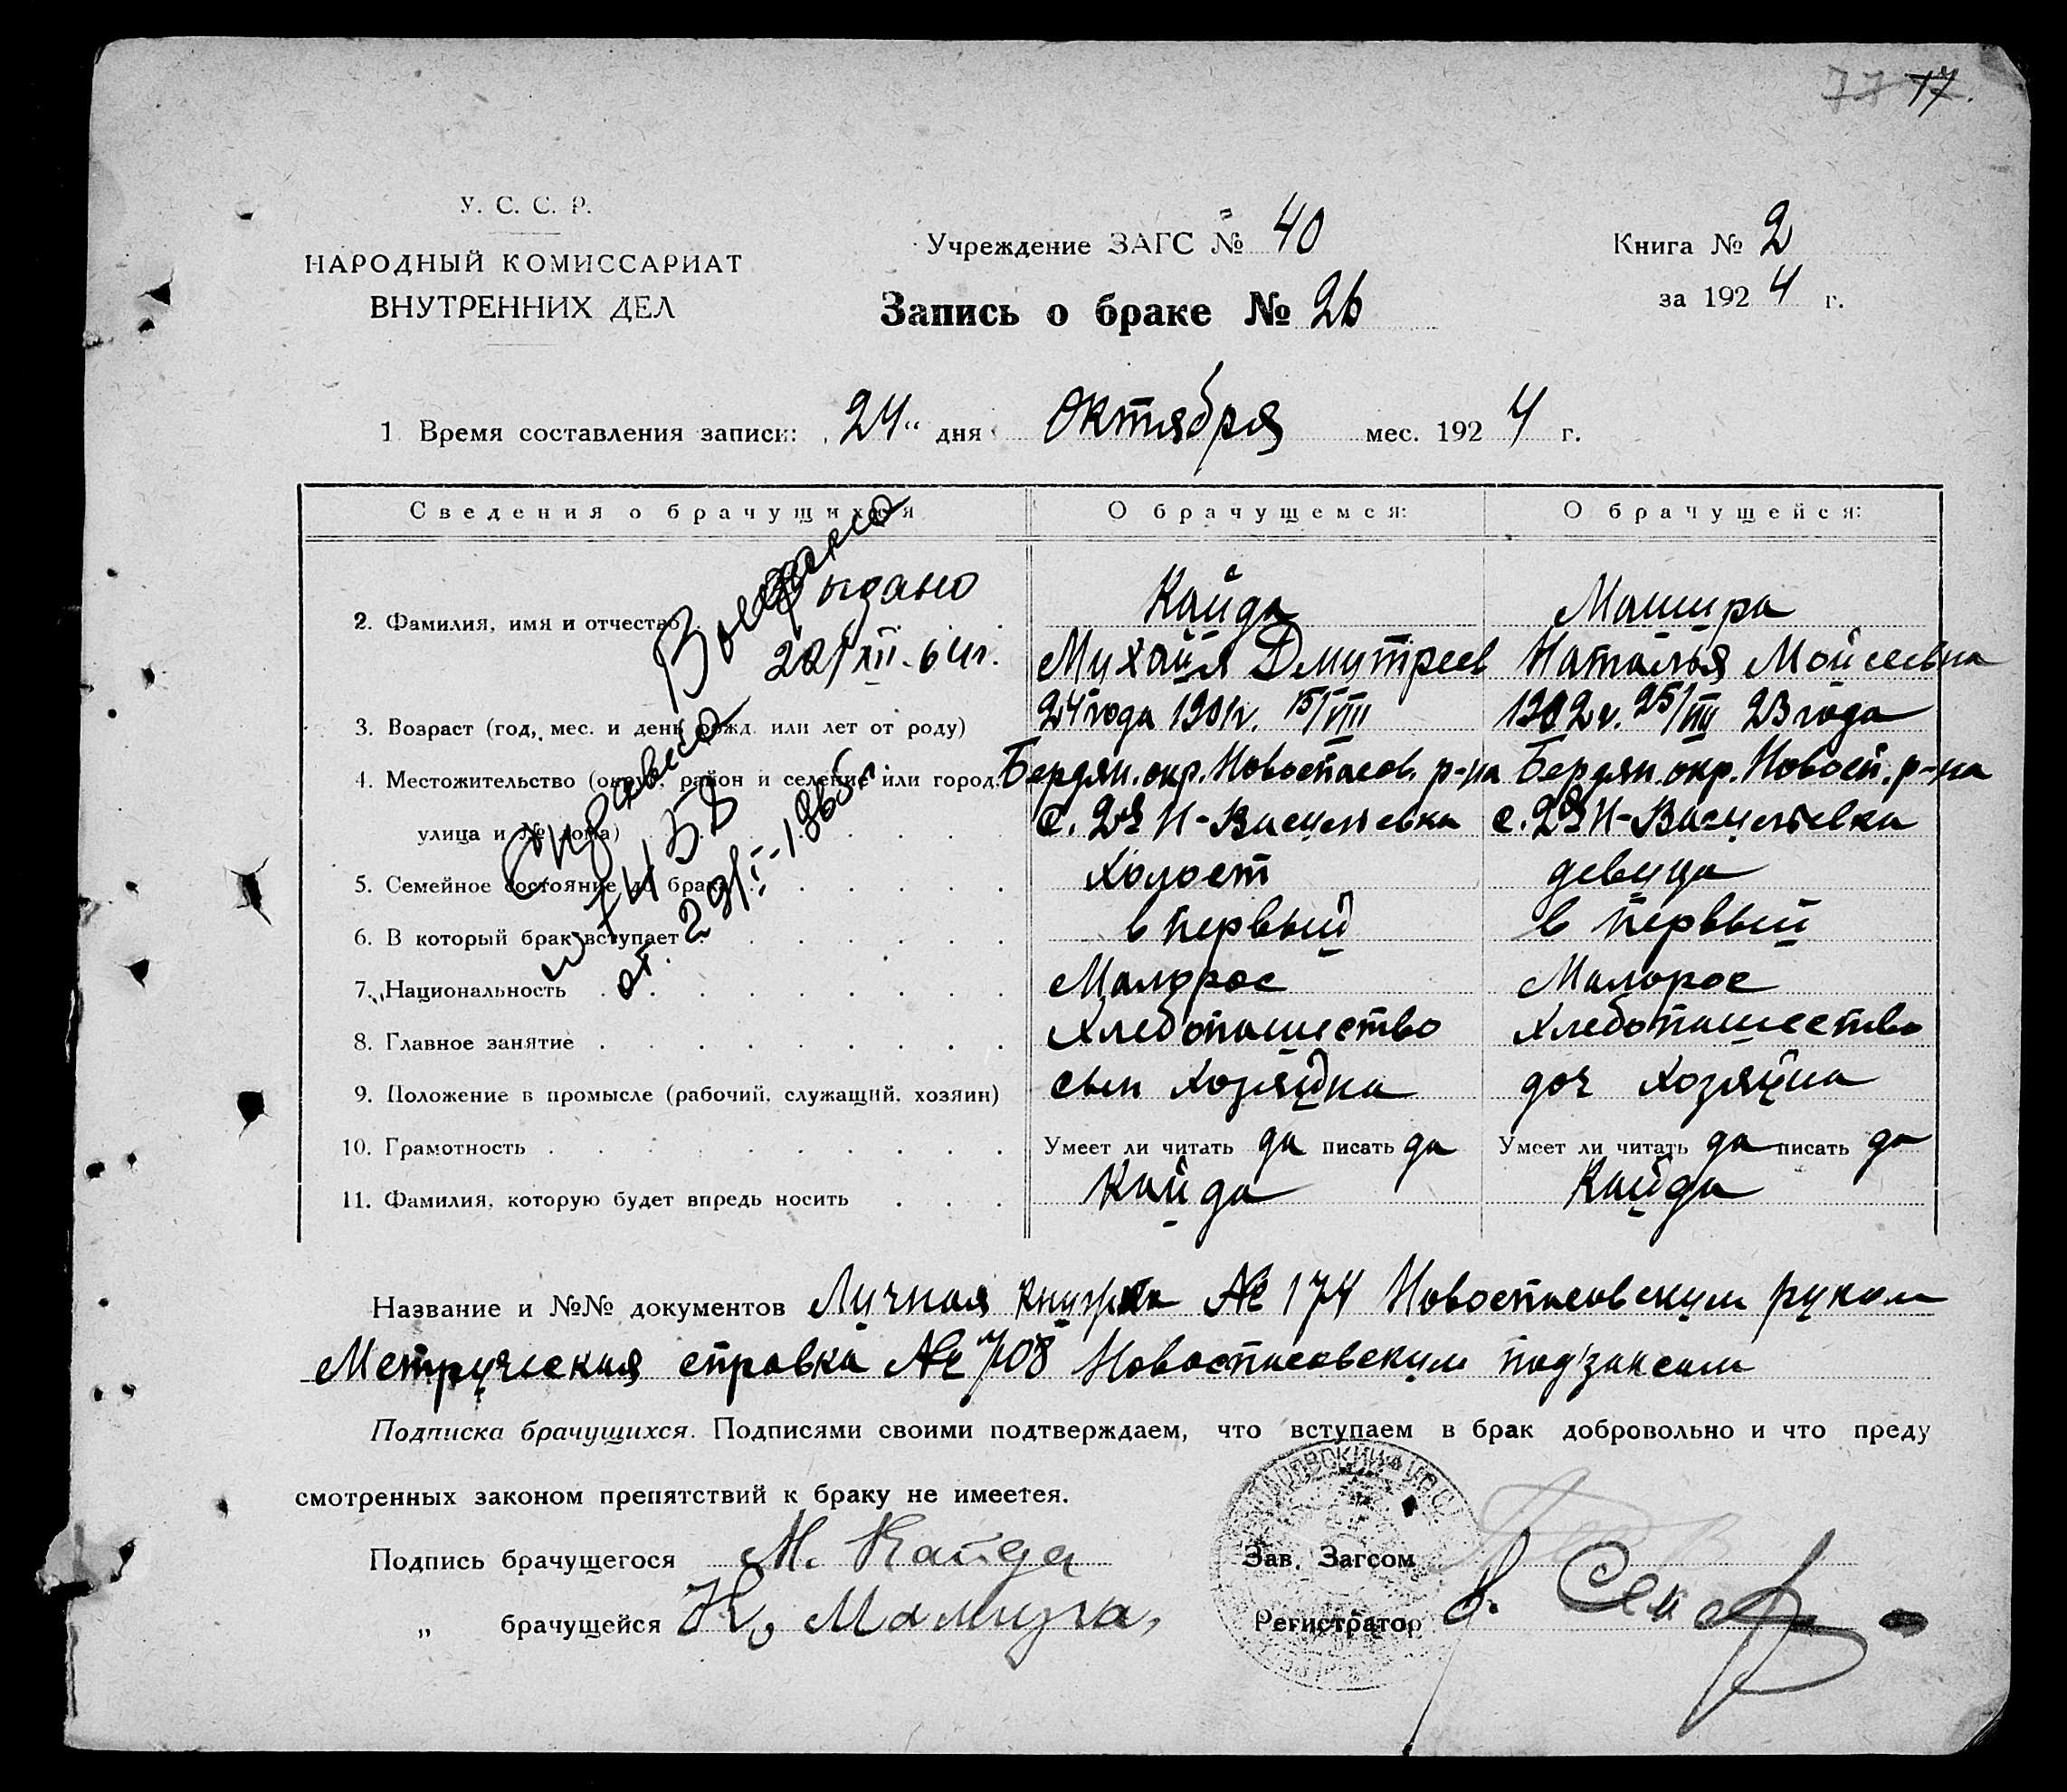 77 17.
У. С. С. Р.
НАРОДНЫЙ КОМИССАРИАТ
ВНУТРЕННИХ ДЕЛ
Учреждение ЗАГС № 40
Запись о браке № 26
Книга № 2
за 1924 г.
1 Время составления записи: 24" дня Октября мес. 1924 г.
Сведения о брачущихся
О брачущемся:
О брачущейся:
2. Фамилия, имя и отчество
Кайда
Машира
Михайл Дмитреев
Наталья Мойсеевна
3. Возраст (год, мес. и день рожд. или лет от роду)
24 года 1901г. 15/VIII
1902г. 25/VIII 23 года
4. Местожительство (округ, район и селение или город,
Бердян. окр. Новоспасов. р-на
Бердян. окр. Новосп. р-на
улица и № дома)
с. 2я Н-Васильевка
с. 2я Н-Васильевка
5. Семейное состояние до брака
Холост
девица
6. В который брак вступает
в первый
в первый
7. Национальность
Малорос
Малорос
8. Главное занятие
Хлебопашество
Хлебопашество
9. Положение в промысле (рабочий, служащий, хозяин)
сын хозяйна
доч хозяйна
10. Грамотность
Умеет ли читать да писать да
Умеет ли читать да писать да
11. Фамилия, которую будет впредь носить
Кайда
Кайда
Выдано
Выдано
22/XII-64г.
Справка
№ 74158
от. 29/I-1965г.
Название и №№ документов Личная книжка № 174 Новоспасовским риком
Метрическая справка № 708 Новоспасовским под'загсом
Подписка брачущихся. Подписями своими подтверждаем, что вступаем в брак добровольно и что преду
смотренных законом препятствий к браку не имеется.
Подпись брачущегося М. Кайда
Зав. Загсом
„ брачущейся Н. Машира,
Регистратор